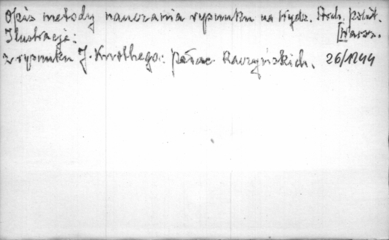 Opis metody nauczania rysunku na Wydz. Arch. polit.
Ilustracje: Warsz.
z rysunku J. Knothego: pałac Raczyńskich. 26/1244